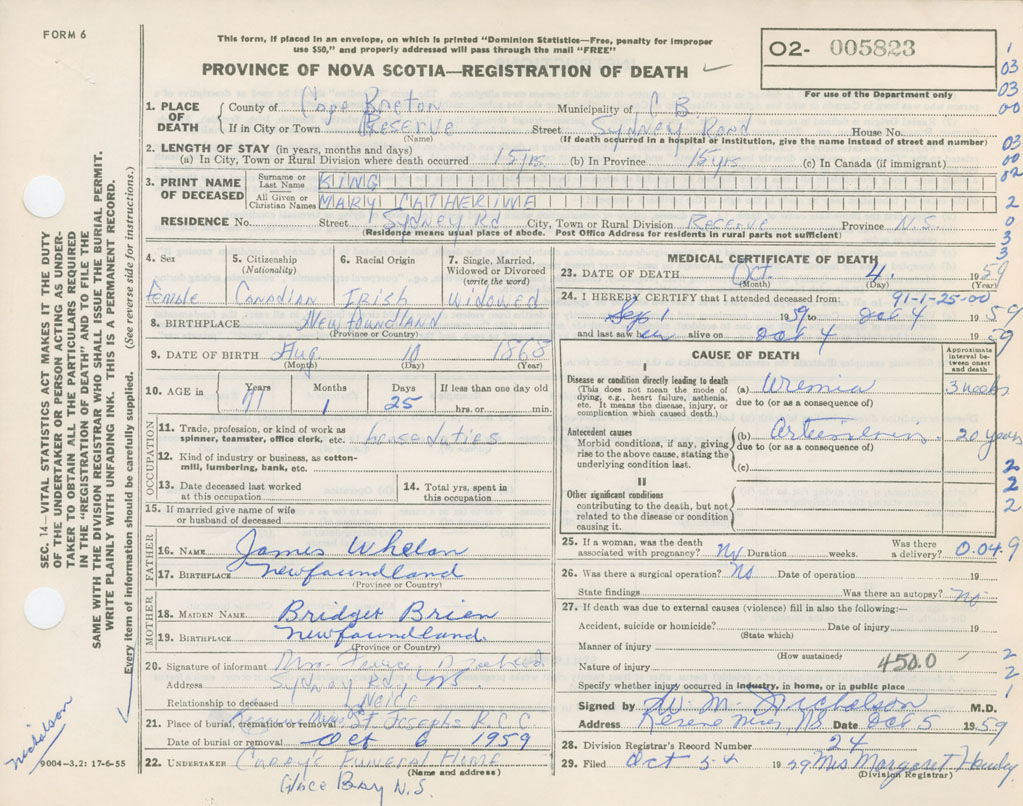 FORM 6
This form, if placed in an envelope, on which is printed "Dominion Statistics—Free, penalty for improper
use $50," and properly addressed will pass through the mail "FREE"
PROVINCE OF NOVA SCOTIA—REGISTRATION OF DEATH
O2- 005823
For use of the Department only
1. PLACE OF DEATH
County of Cape Breton Municipality of C B
If in City or Town Reserve Street Sydney Road House No.
(Name) (If death occurred in a hospital or institution, give the name instead of street and number)
2. LENGTH OF STAY (in years, months and days)
(a) In City, Town or Rural Division where death occurred 15 yrs (b) In Province 15 yrs (c) In Canada (if immigrant)
3. PRINT NAME OF DECEASED
Surname or Last Name KING
All Given or Christian Names MARY CATHERINE
RESIDENCE No. Street Sydney Rd City, Town or Rural Division Reserve Province N.S.
(Residence means usual place of abode. Post Office Address for residents in rural parts not sufficient)
4. Sex
Female
5. Citizenship
(Nationality)
Canadian
6. Racial Origin
Irish
7. Single, Married, Widowed or Divorced
(write the word)
Widowed
8. BIRTHPLACE Newfoundland
(Province or Country)
9. DATE OF BIRTH Aug 10 1868
(Month) (Day) (Year)
10. AGE in Years Months Days If less than one day old
91 1 25 hrs. or min.
OCCUPATION
11. Trade, profession, or kind of work as
spinner, teamster, office clerk, etc. house duties
12. Kind of industry or business, as cotton-
mill, lumbering, bank, etc.
13. Date deceased last worked
at this occupation
14. Total yrs. spent in
this occupation
15. If married give name of wife
or husband of deceased
FATHER
16. NAME James Whelan
17. BIRTHPLACE Newfoundland
(Province or Country)
MOTHER
18. MAIDEN NAME Bridget Brien
19. BIRTHPLACE Newfoundland.
(Province or Country)
20. Signature of informant Mrs.
Address Sydney Rd. NS.
Relationship to deceased Neice
21. Place of burial, cremation or removal St Josephs R.C.C.
Date of burial or removal Oct 6 1959
22. UNDERTAKER Curry's Funeral Home
(Name and address)
Glace Bay N.S.
MEDICAL CERTIFICATE OF DEATH
23. DATE OF DEATH Oct 4. 1959
(Month) (Day) (Year)
24. I HEREBY CERTIFY that I attended deceased from: 91-1-25-00
Sep 1 1959 to Oct 4 1959
and last saw her alive on Oct 4 1959
CAUSE OF DEATH
Approximate interval between onset and death
I
Disease or condition directly leading to death
(This does not mean the mode of
dying, e.g., heart failure, asthenia,
etc. It means the disease, injury, or
complication which caused death.)
(a) Uremia 3 weeks
due to (or as a consequence of)
Antecedent causes
Morbid conditions, if any, giving
rise to the above cause, stating the
underlying condition last.
(b) 20 years
due to (or as a consequence of)
(c)
II
Other significant conditions
contributing to the death, but not
related to the disease or condition
causing it.
25. If a woman, was the death Was there
associated with pregnancy? No Duration weeks. a delivery? 0.04.9
26. Was there a surgical operation? No Date of operation 19
State findings Was there an autopsy? No
27. If death was due to external causes (violence) fill in also the following:—
Accident, suicide or homicide? Date of injury 19
(State which)
Manner of injury
(How sustained)
Nature of injury 450.0
Specify whether injury occurred in industry, in home, or in public place
Signed by W. M. Nicholson M.D.
Address Reserve Mines, NS Date Oct 5 1959
28. Division Registrar's Record Number 24
29. Filed Oct 5th 1959 Mrs Margaret
(Division Registrar)
SEC. 14—VITAL STATISTICS ACT MAKES IT THE DUTY
OF THE UNDERTAKER OR PERSON ACTING AS UNDER-
TAKER TO OBTAIN ALL THE PARTICULARS REQUIRED
IN THE "REGISTRATION OF DEATH" AND TO FILE THE
SAME WITH THE DIVISION REGISTRAR WHO SHALL ISSUE THE BURIAL PERMIT.
WRITE PLAINLY WITH UNFADING INK. THIS IS A PERMANENT RECORD.
Every item of information should be carefully supplied. (See reverse side for instructions.)
Nicholson
9004—3.2: 17-6-55
1
03
03
00
03
00
02
2
0
3
3
2
2
2
2
2
1